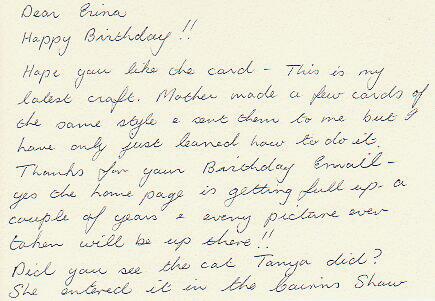 Dear Erina
Happy Birthday !!
Hope you like the card - This is my
latest craft. Mother made a few cards of
the same style & sent them to me but I
have only just learned how to do it.
Thanks for your Birthday Email -
yes the home page is getting full up - a
couple of years & every picture ever
taken will be up there!!
Did you see the cat Tanya did?
She entered it in the Cairns Show